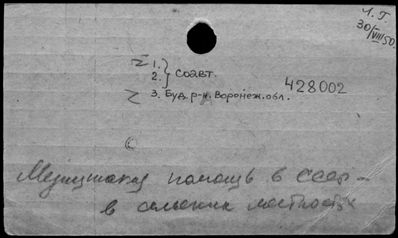 Л. Г.
30/VIII 50.
1. } соавт.
2.
3. Буд. р-н. Воронеж. обл.
428002
Медицинская помощь в СССР -
в сельских местностях